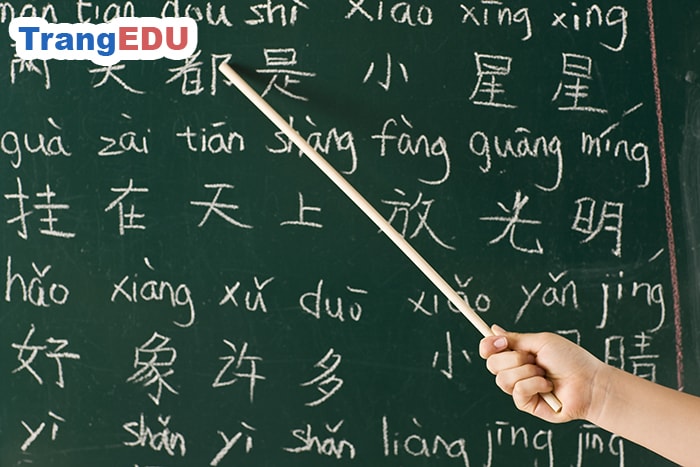 TrangEDU
tian dou shì xiao xīng xīng
天 都 是 小 星 星
guà zài tiān shàng fàng guāng míng
挂 在 天 上 放 光 明
hǎo xiàng xǔ duō xiǎo yǎn jīng
好 象 许 多 小 睛
yī shǎn yī shǎn liàng jīng jīng